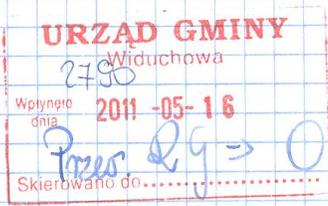 URZĄD GMINY
Widuchowa
2790
Wpłynęło
dnia 2011 -05- 16
Przew. RG → O
Skierowano do